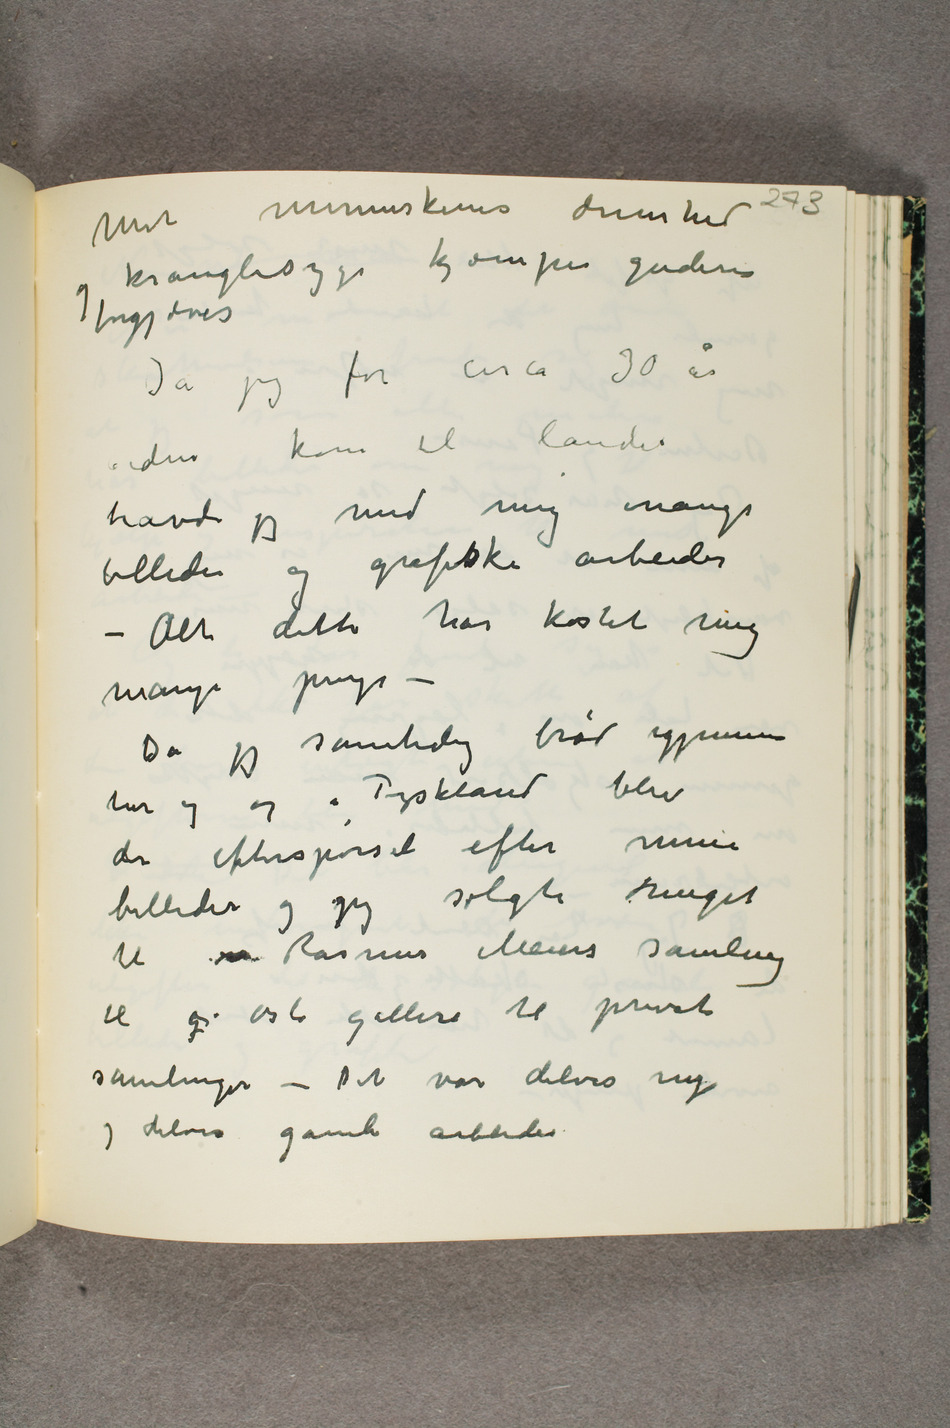 273
Mot menneskenes dumhed
og kranglesyge kjæmper guderne
forgjæves
Da jeg for circa 30 år
siden kom til landet
havde jeg med mig mange
billeder og grafiske arbeider
– Alt dette har kostet mig
mange penge –
Da jeg samtidig brød igjennem
her og i Tyskland blev
der efterspørsel efter mine
billeder og jeg solgte meget
til Rasmus Meiers samling
til Oslo galleri til private
samlinger – Det var delvis nye
og delvis gamle arbeider